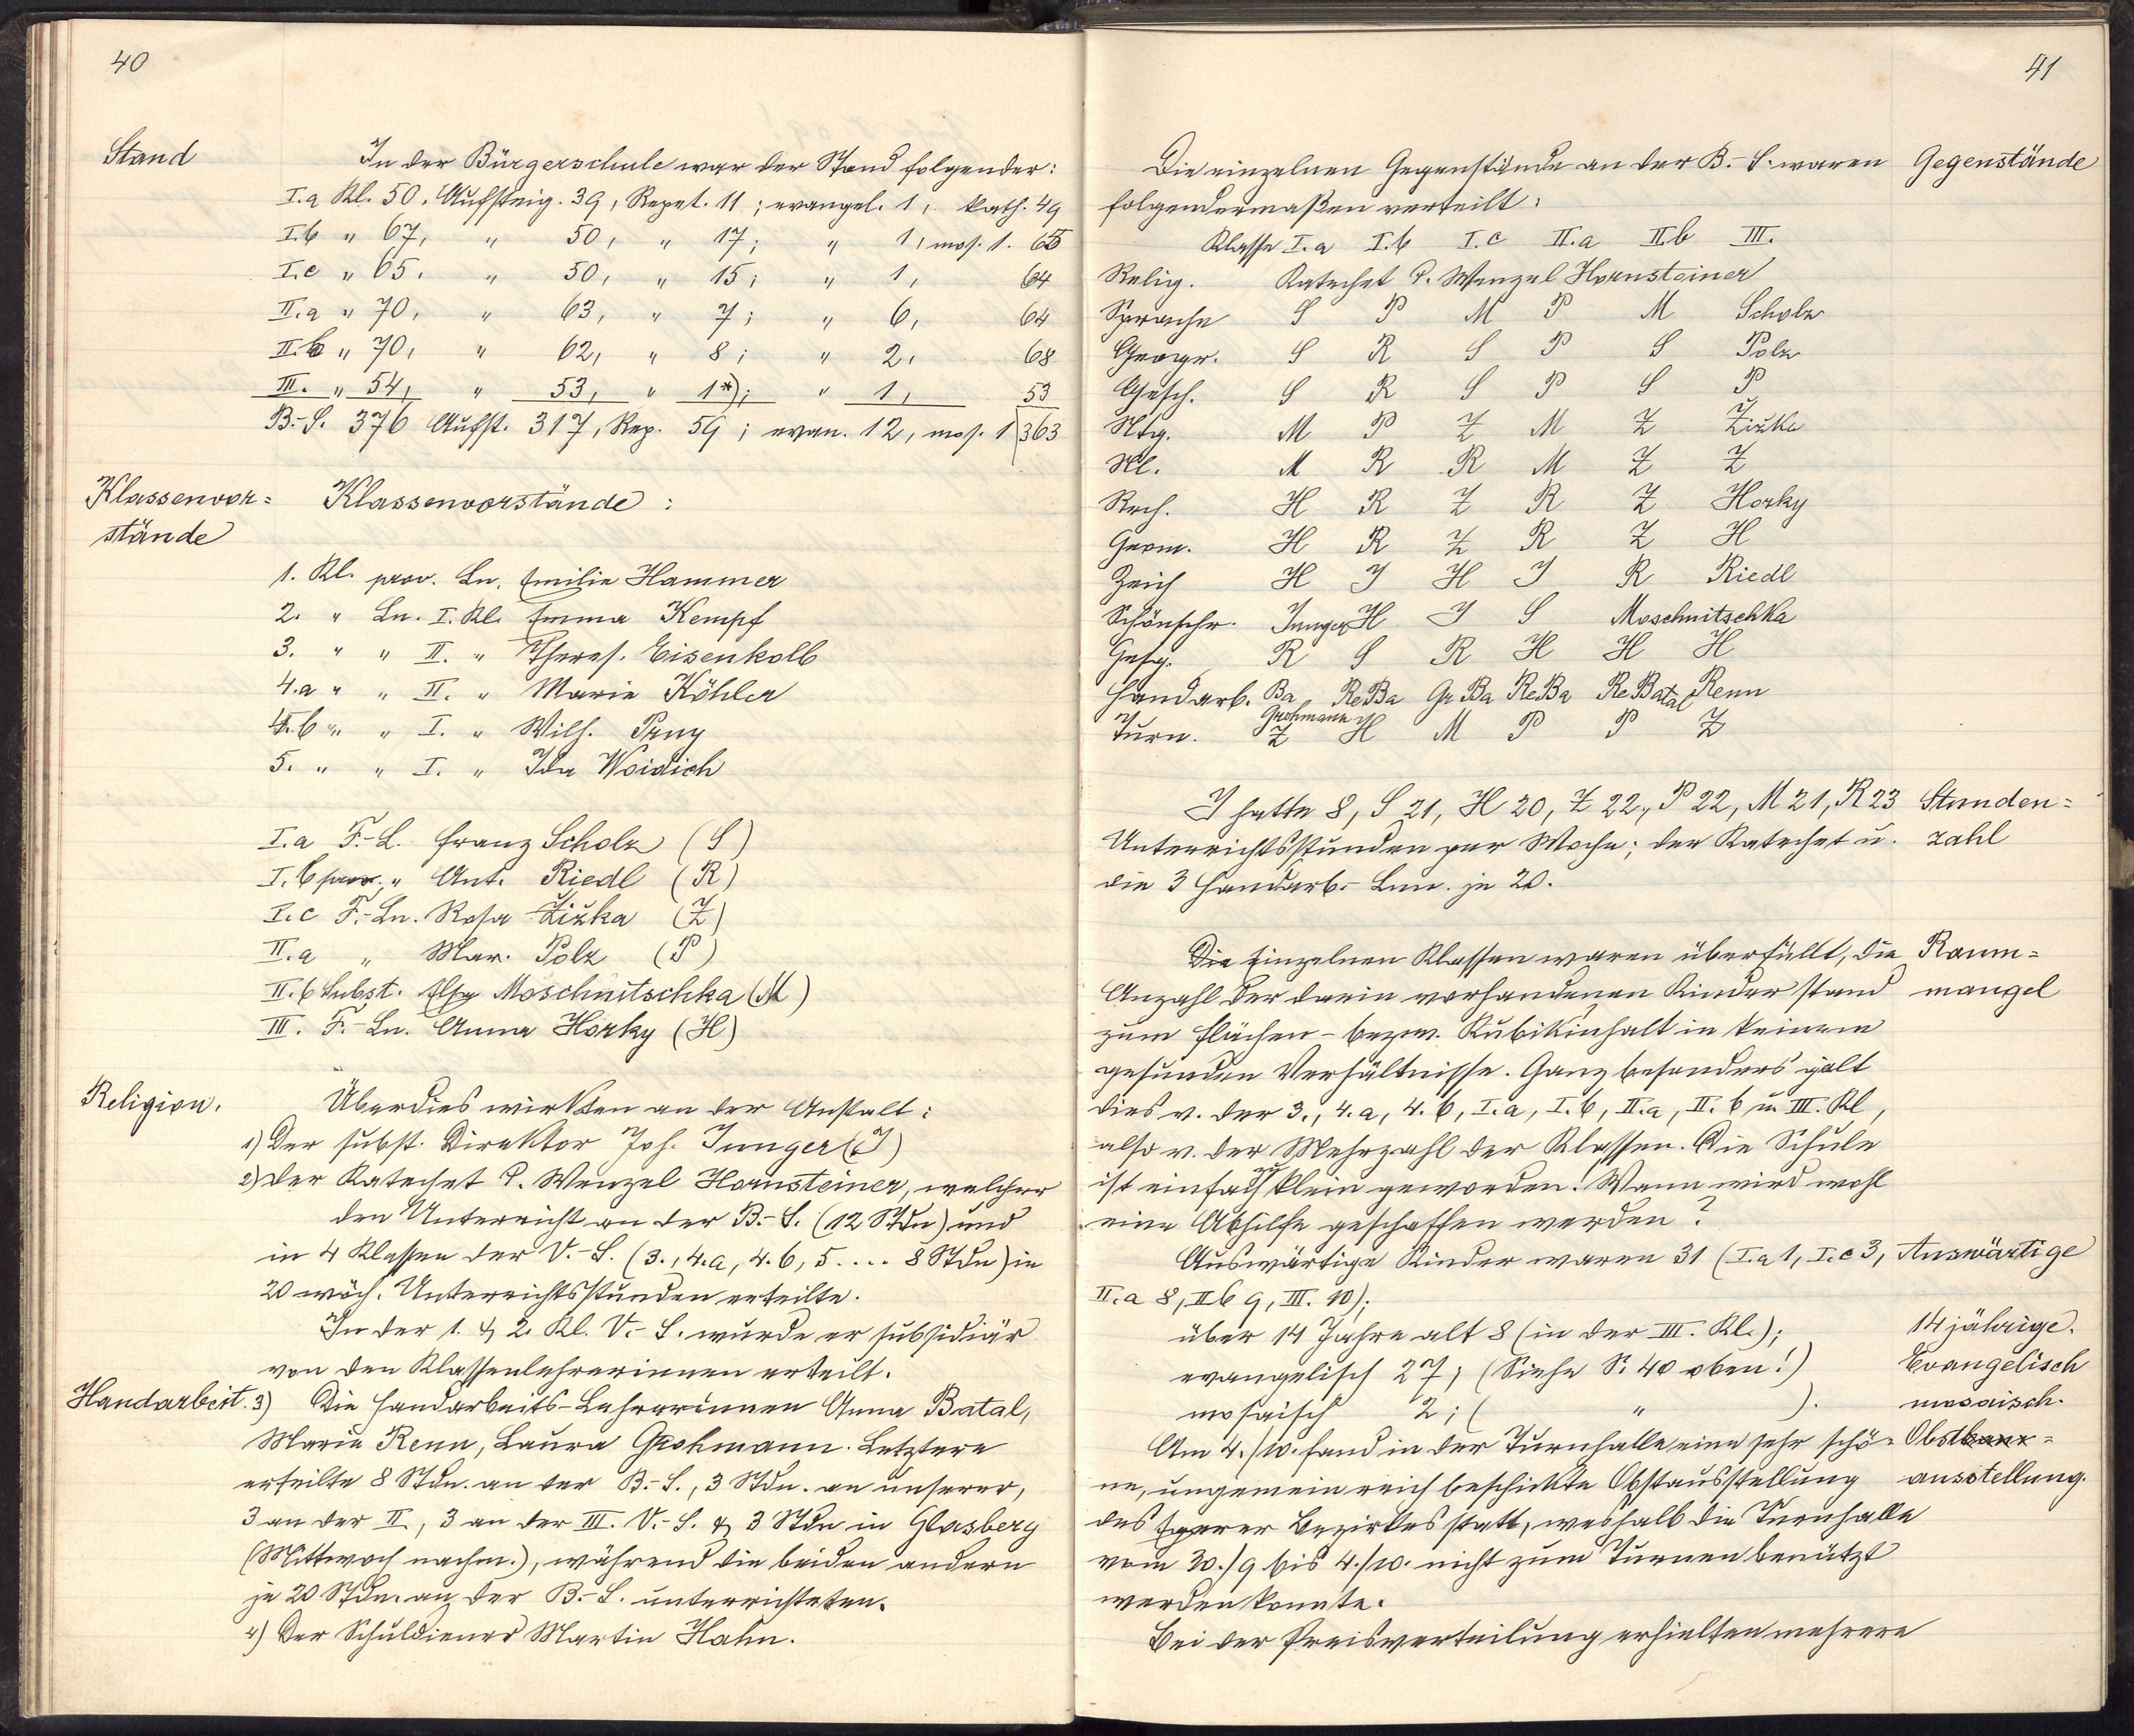 40
Stand
In der Bürgerschule war der Stand folgender:
I.a Kl. 50, Aufsteig. 39, Repet. 11; evangel. 1, kath. 49
I.b " 67, " 50, " 17; " 1, mos. 1. 65
I.c " 65, " 50, " 15; " 1, 64
II.a " 70, " 63, " 7; " 6, 64
II.b " 70, " 62, " 8; " 2, 68
III. " 54, " 53, " 1*); " 1, 53
B.-S. 376 Aufst. 317, Rep. 59; evan. 12, mos. 1 363
Klassenvor=
stände
Klassenvorstände:
1. Kl. prov. Ln. Emilie Hammer
2. " Ln. I. Kl. Emma Kempf
3. " " II. " Theres. Eisenkolb
4.a " " II. " Marie Köhler
4.b " " I. " Wilh. Prny
5. " " I. " Ida Woidich
I.a F.-L. Franz Scholz (S)
I.b prov. " Ant. Riedl (R)
I.c F.-Ln. Rosa Žižka (Ž)
II.a " Mar. Polz (P)
II.b Subst. Elsa Moschnitschka (M)
III. F.-Ln. Anna Horky (H)
Religion.
Überdies wirkten an der Anstalt:
1) Der subst. Direktor Joh. Junger (J)
2) Der Katechet P. Wenzel Hornsteiner, welcher
den Unterricht an der B.-S. (12 Stdn) und
in 4 Klassen der V.-S. (3., 4.a, 4.b, 5.... 8 Stdn) in
20 wöch. Unterrichtsstunden erteilte.
In der 1. & 2. Kl. V.-S. wurde er subsidiär
von den Klassenlehrerinnen erteilt.
Handarbeit. 3) Die Handarbeits-Lehrerinnen Anna Batal,
Marie Renn, Laura Grohmann. Letztere
erteilte 8 Stdn. an der B.-S., 3 Stdn. an unserer,
3 an der II., 3 an der III. V.-S. & 3 Stdn in Glasberg
(Mittwoch nachm.), während die beiden andern
je 20 Stdn. an der B.-S. unterrichteten.
4) Der Schuldiener Martin Hahn.
41
Die einzelnen Gegenstände an der B.-S. waren Gegenstände
folgendermaßen verteilt:
Klasse I.a I.b I.c II.a II.b III.
Relig. Katechet P. Wenzel Hornsteiner
Sprache S P M P M Scholz
Geogr. S R S P S Polz
Gesch. S R S P S P
Ntg. M P Ž M Ž Žižka
Nl. M R R M Ž Ž
Rech. H R Ž R Ž Horky
Geom. H R Ž R Ž H
Zeich H J H J R Riedl
Schönschr. Junger H J S Moschnitschka
Gesg. R S R H H H
Handarb. Ba ReBa GrBa ReBa ReBatal Renn
Grohmann
Turn. Ž H M P P Ž
J hatte 8, S 21, H 20, Ž 22, P 22, M 21, R 23 Stunden=
Unterrichtsstunden per Woche; der Katechet u. zahl
die 3 Handarb.-Lnn. je 20.
Die einzelnen Klassen waren überfüllt, die Raum=
Anzahl der darin vorhandenen Kinder stand mangel
zum Flächen- bezw. Kubikinhalt in keinem
gesunden Verhältnisse. Ganz besonders galt
dies v. der 3., 4.a, 4.b, I.a, I.b, II.a, II.b u. III. Kl.,
also v. der Mehrzahl der Klassen. Die Schule
ist einfach zu klein geworden! Wann wird wohl
eine Abhilfe geschaffen werden?
Auswärtige Kinder waren 31 (I.a 1, I.c 3, Auswärtige
II.a 8, IIb 9, III. 10);
über 14 Jahre alt 8 (in der III. Kl.); 14jährige.
evangelisch 27; (Siehe S. 40 oben!) Evangelisch
mosaisch 2; ( " ). mosaisch.
Am 4./10. fand in der Turnhalle eine sehr schö- Obst=
ne, ungemein reich beschickte Obstausstellung ausstellung.
des Egerer Bezirkes statt, weshalb die Turnhalle
vom 30./9 bis 4./10. nicht zum Turnen benützt
werden konnte.
Bei der Preisverteilung erhielten mehrere